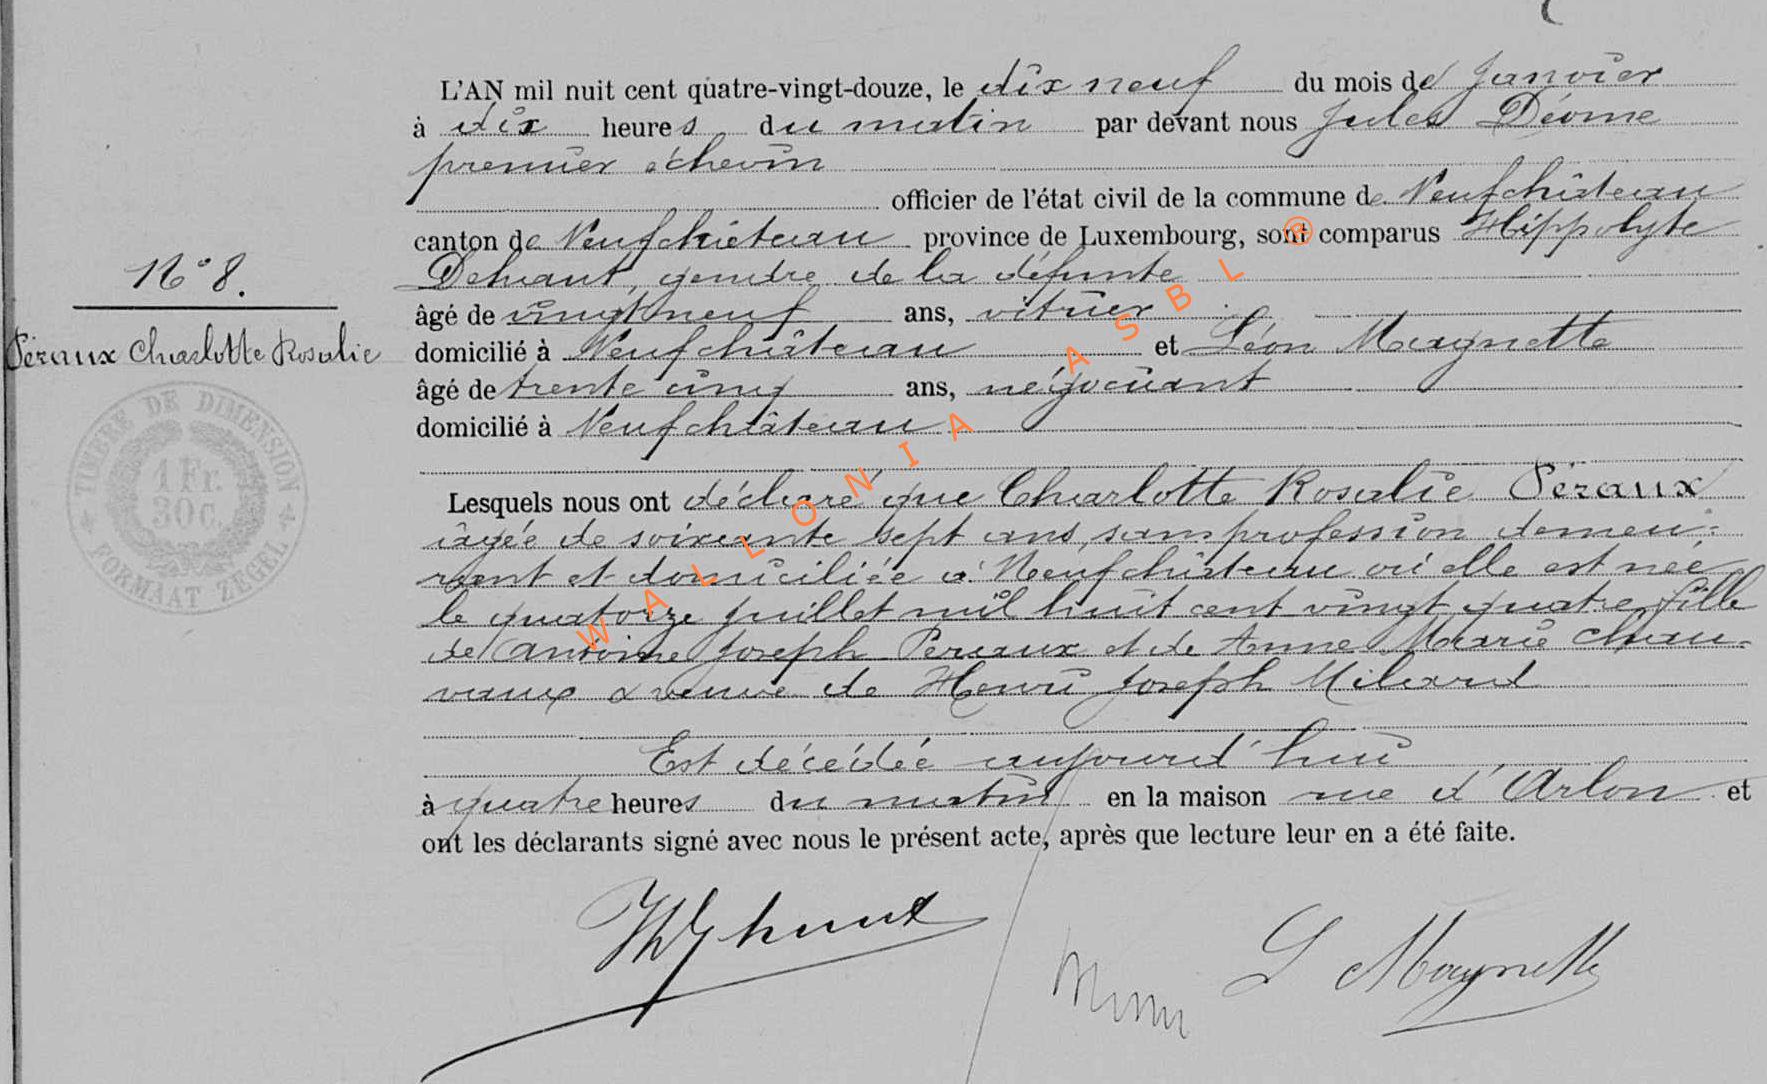 L'AN mil huit cent quatre-vingt-douze, le dix neuf du mois de Janvier
à dix heures du matin par devant nous Jules Déome
premier échevin
officier de l'état civil de la commune de Neufchâteau
canton de Neufchâteau province de Luxembourg, sont comparus Hippolyte
Dehant, gendre de la défunte
âgé de vingt neuf ans, vitrier
N° 8.
Péraux Charlotte Rosalie
domicilié à Neufchâteau et Léon Maynette
âgé de trente cinq ans, négociant
domicilié à Neufchâteau
TIMBRE DE DIMENSION
1 Fr.
30 C.
FORMAAT ZEGEL
Lesquels nous ont déclaré que Charlotte Rosalie Péraux
âgée de soixante sept ans, sans profession demeu-
rant et domiciliée à Neufchâteau où elle est née
le quatorze juillet mil huit cent vingt quatre, fille
de Antoine Joseph Péraux et de Anne Marie
& veuve de Henri Joseph Milard
Est décédée aujourd'hui
à quatre heures du matin en la maison rue d'Arlon et
ont les déclarants signé avec nous le présent acte, après que lecture leur en a été faite.
L Maynette
WALLONIA ASBL ®